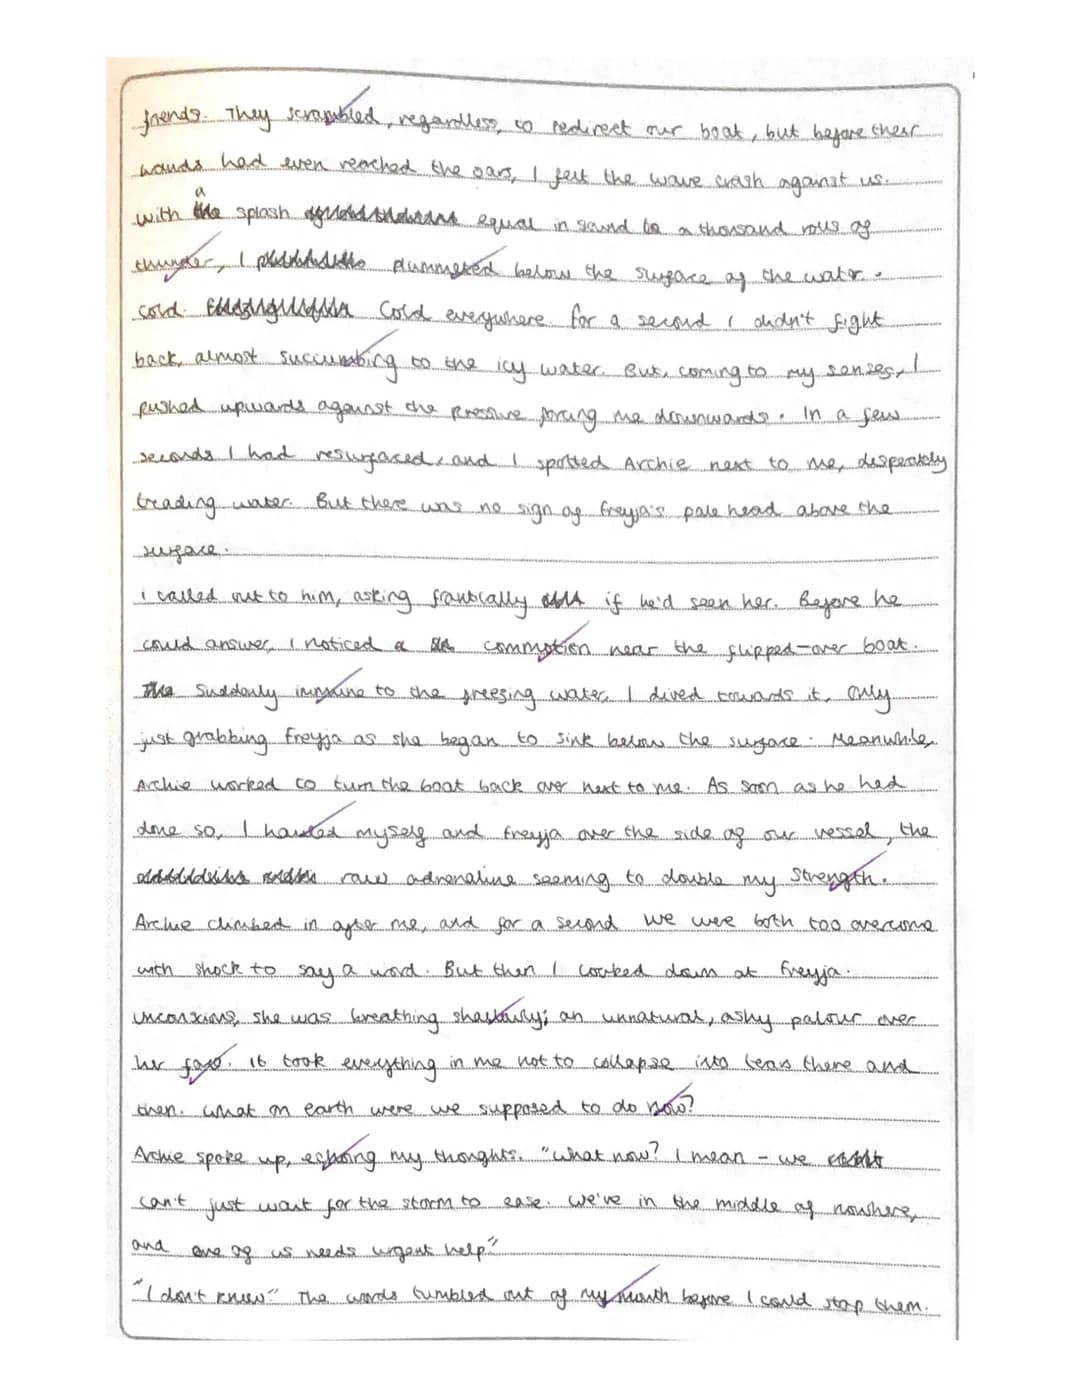 friends. They scrambled, regardless, to redirect our boat, but before their
hands had even reached the oars, I felt the wave crash against us.
a
with splash equal in sound to a thousand rolls of
thunder, I plummeted below the surface of the water.
Cold. Cold everywhere. For a second I didn't fight
back, almost succumbing to the icy water. But, coming to my senses, I
pushed upwards against the pressure forcing me downwards. In a few
seconds I had resurfaced, and I spotted Archie next to me, desperately
treading water. But there was no sign of Freyja's pale head above the
surface.
I called out to him, asking frantically if he'd seen her. Before he
could answer, I noticed a commotion near the flipped-over boat.
Suddenly immune to the freezing water, I dived towards it, only
just grabbing Freyja as she began to sink below the surface. Meanwhile,
Archie worked to turn the boat back over next to me. As soon as he had
done so, I hauled myself and Freyja over the side of our vessel, the
raw adrenaline seeming to double my strength.
Archie climbed in after me, and for a second we were both too overcome
with shock to say a word. But then I looked down at Freyja.
Unconscious, she was breathing shallowly; an unnatural, ashy palour over
her face. It took everything in me not to collapse into tears there and
then. What on earth were we supposed to do now?
Archie spoke up, echoing my thoughts. "What now? I mean - we
can't just wait for the storm to ease. We've in the middle of nowhere,
and one of us needs urgent help."
"I don't know." The words tumbled out of my mouth before I could stop them.